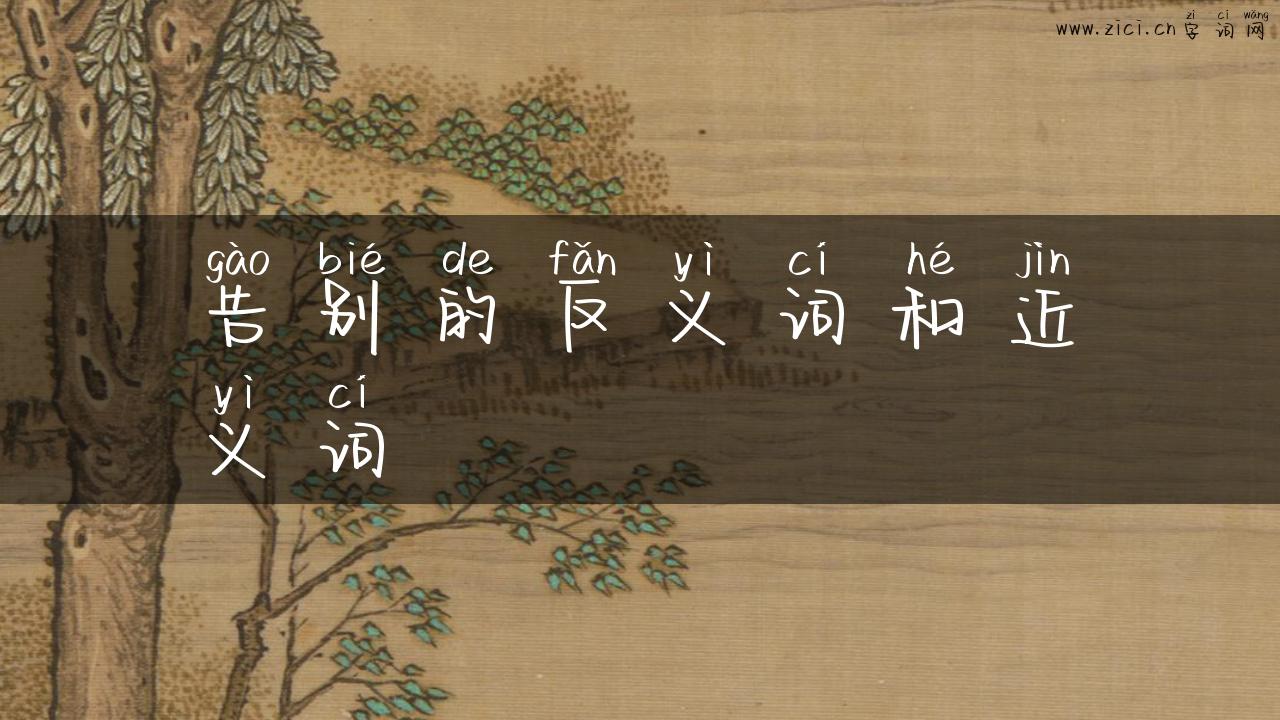 zì cí wǎng
www.zici.cn 字词网
gào bié de fǎn yì cí hé jìn
告别的反义词和近
yì cí
义词